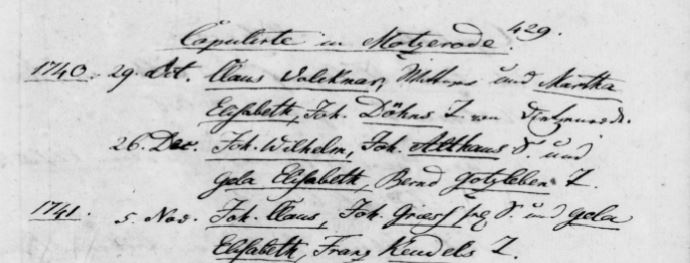 429.
Copulirte in Motzerode.
1740. 29. Oct. Claus Volckmar, Wittwer und Martha
Elisabeth, Joh. Döhns T. von
26. Dec. Joh. Wilhelm, Joh. Althaus S. und
gela Elisabeth, Bernd gotzleben T.
1741. 5. Nov. Joh. Claus, Joh. S. und gela
Elisabeth, Franz Keudels T.